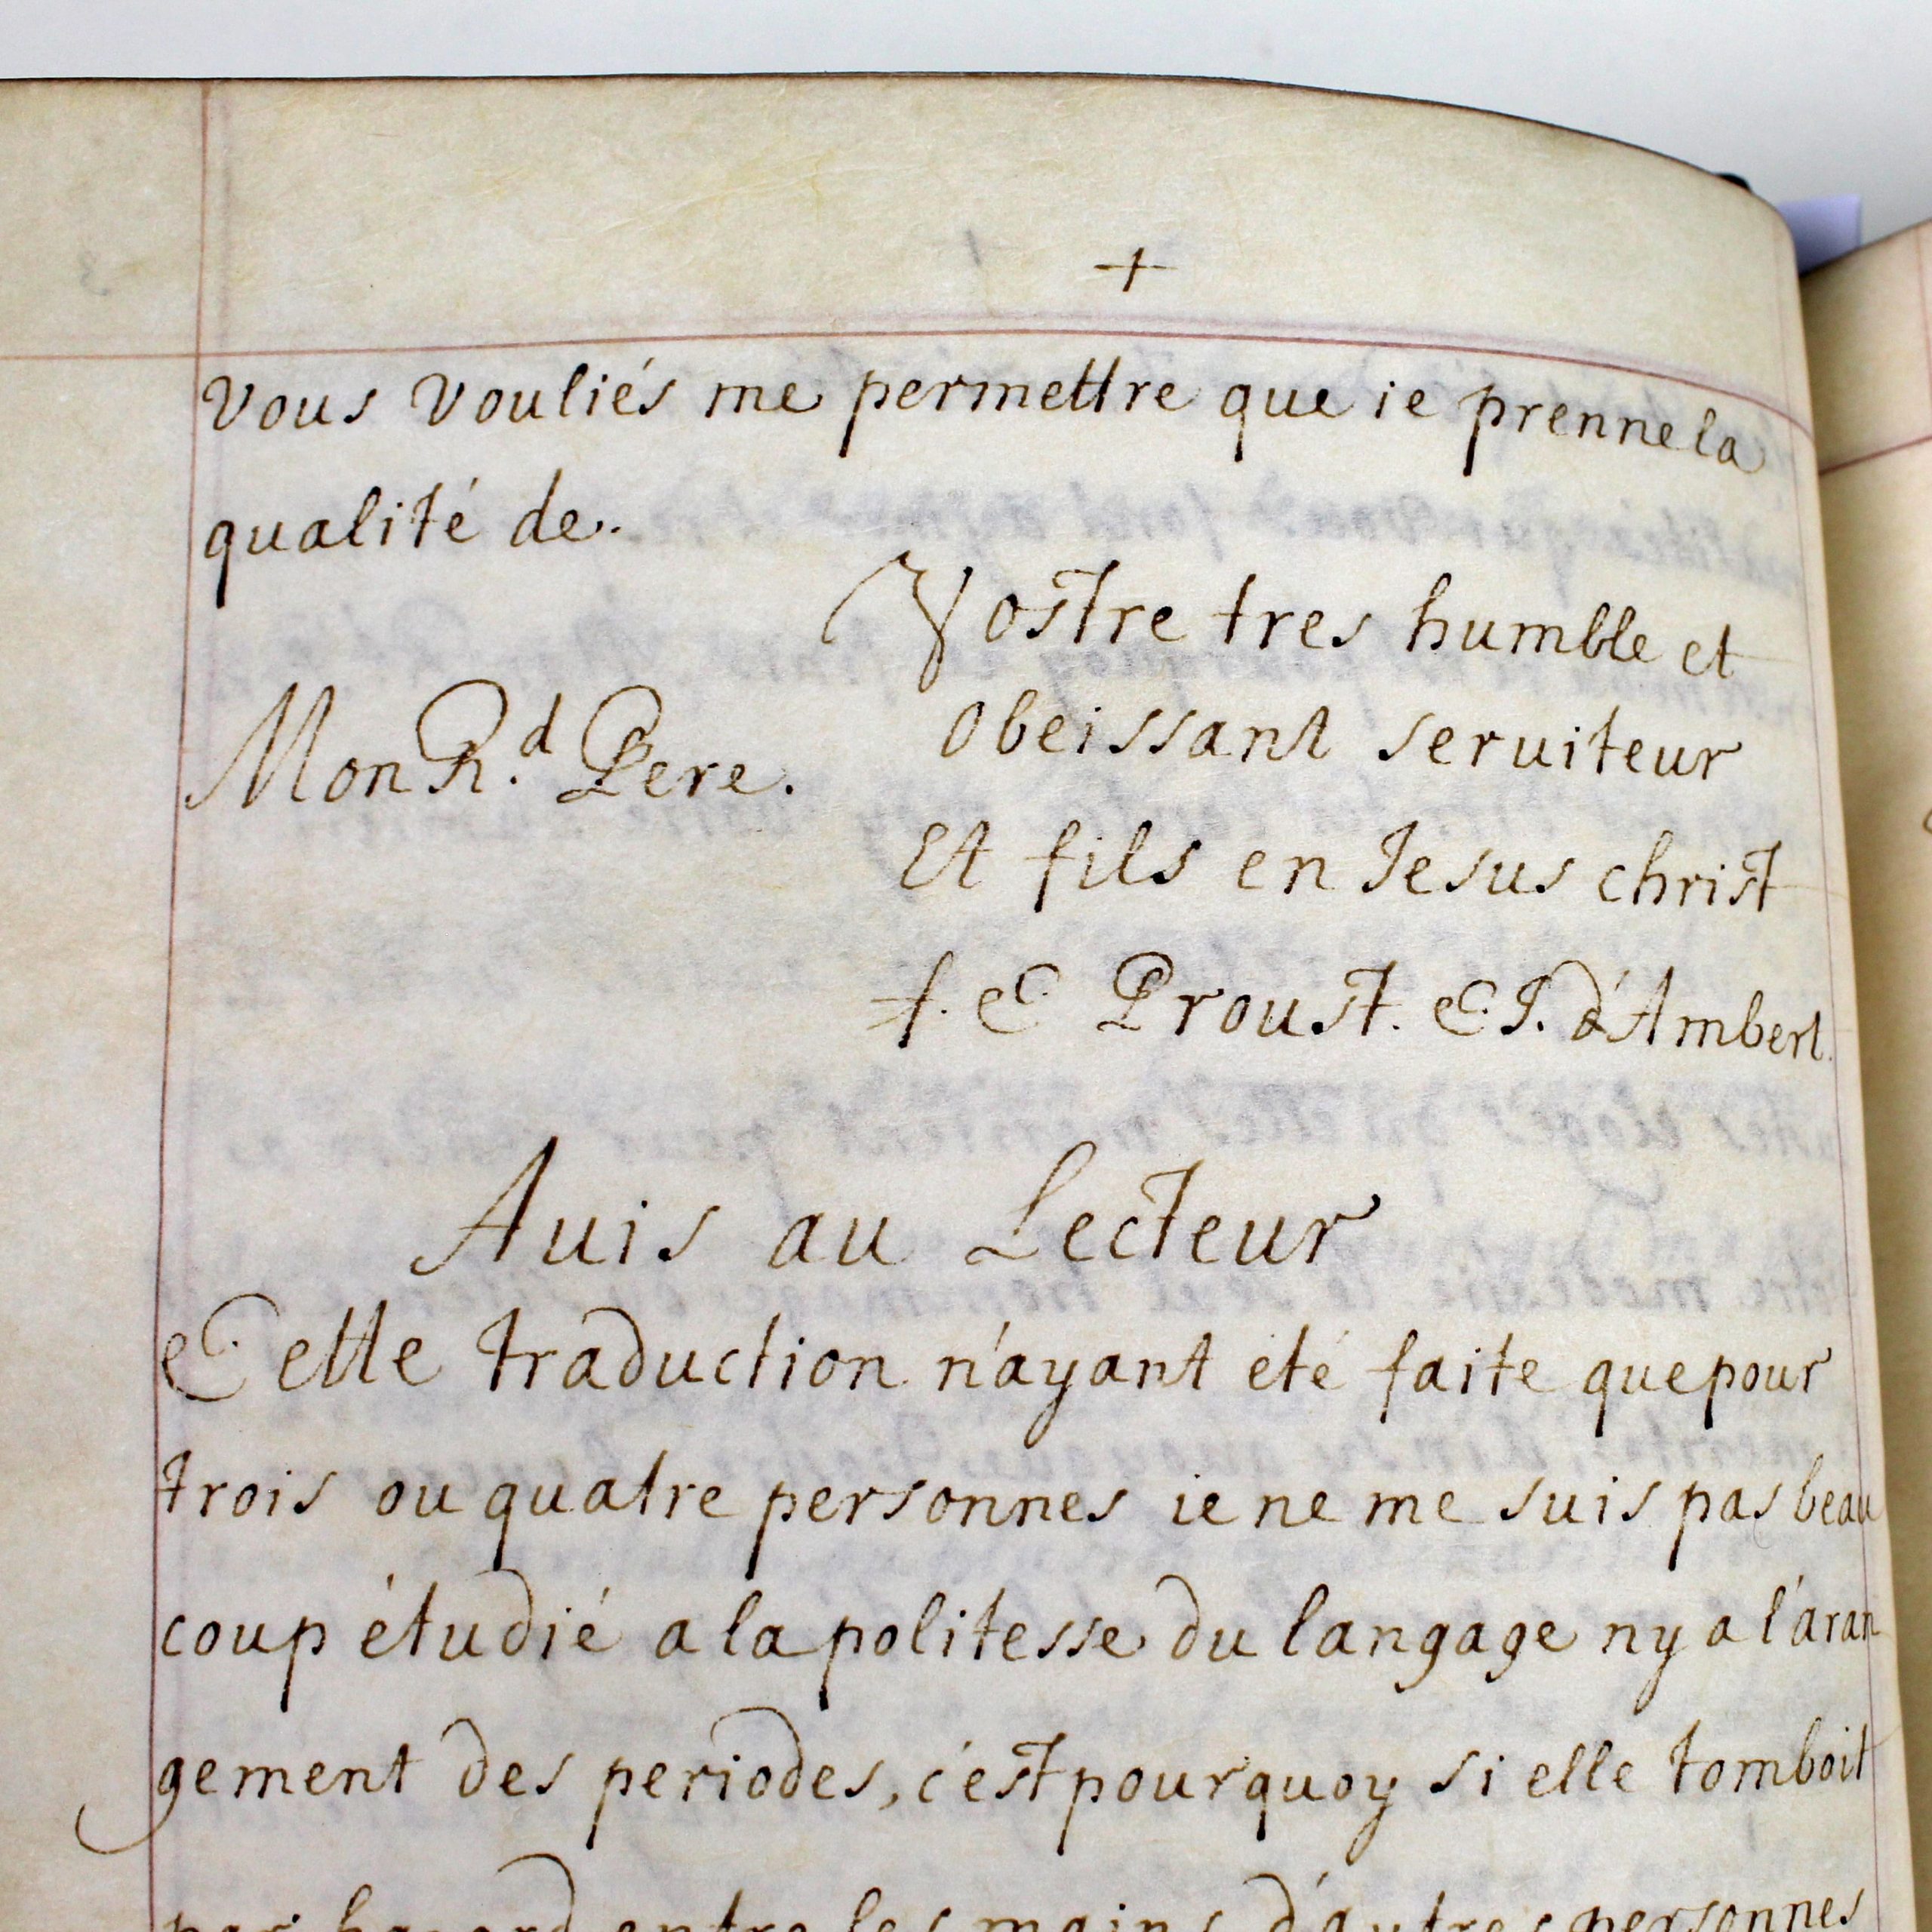 +
vous vouliés me permettre que ie prenne la
qualité de.
Vostre tres humble et
Mon R.d Pere.
obeissant seruiteur
Et fils en Jesus christ
f. C Proust. C J. d'Ambert.
Auis au Lecteur
Cette traduction n'ayant eté faite que pour
trois ou quatre personnes ie ne me suis pas beau
coup étudié a la politesse du langage ny a l'aran
gement des periodes, c'est pourquoy si elle tomboit
par hazard entre les mains d'autres personnes